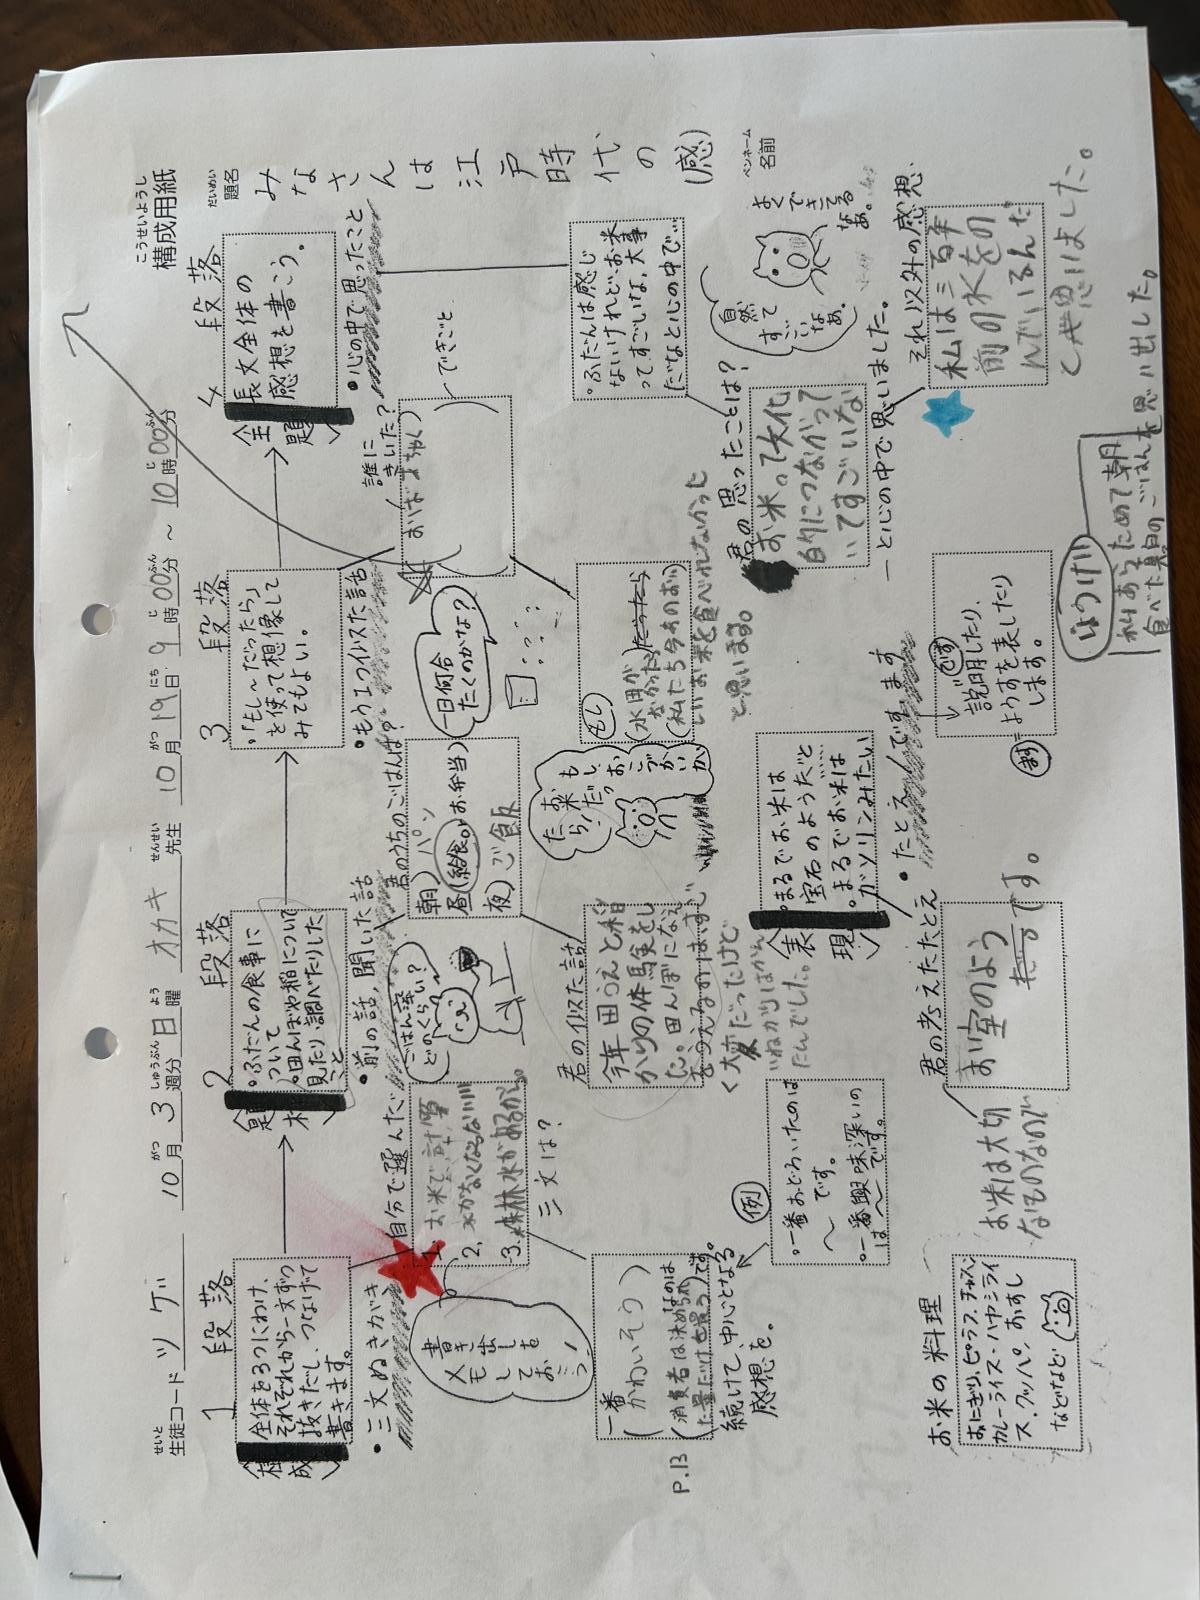 構成用紙
こうせいようし
生徒コード ツゲ 10月3週分 日曜 オカキ 先生 10月19日 9時00分 ～ 10時00分
題名
だいめい
みなさんは江戸時代の(感)
ペンネーム
名前
1段落
〈構成〉
全体を3つにわけ、
それぞれから一文ずつ
抜きだし、つなげて
書きます。
・三文ぬきがき
自分で選んだ
三文は？
1、お米で計算
2、水がなくならない
3、森林水があるから。
書き出しを
メモして
おこう！
一番
(かわいそう)
なのは
(消費者は決められ
た量だけを買う)です。
P.13
続けて、中心となる
感想を。
(例)
・一番おどろいたのは
～です。
・一番興味深いの
は～です。
お米の料理
おにぎり、ピラフ、チャーハン
カレーライス・ハヤシライ
ス、クッパ、おすし
などなど
2段落
〈題材〉
・ふだんの食事に
ついて
・田んぼや稲について
見たり、調べたりした
こと
・前の話、聞いた話
君のうちのごはんは？
朝）パン
昼（給食o）お弁当
夜）ご飯
ごはん率
どのくらい？
君の似た話
今年田うえと稲
かりの体験をし
た。田んぼになえ
をうえるのはすご
く大変だったけど
いねかりはかん
たんでした。
もし、
お米が
おこづかいだっ
たら！
〈表現〉
・まるでお米は
宝石のようだ
・まるでお米は
ガソリンみたい
・たとえ
君の考えたたとえ
お米は大切
なものなので
お宝のよう
です。
3段落
・「もし～だったら」
を使って想像して
みてもよい。
・もう1つ似た話
誰に
きいた？
(おばあちゃん)
できごと
一日何合
たくのかな？
もし
(水田が
なかったら)
(私たち今あのおい
しいお米を食べれなかった
と思います。
です
説明したり、
ようすを表したり
します。
4段落
〈全題〉
長文全体の
感想を書こう。
・心の中で思ったこと
・ふだんは感じ
ないけれど、お米
ってすごいな、大事
だなと心の中で…
君の思ったことは？
お米って文化
的につながって
いてすごいな
―と心の中で思いました。
自然って
すごい
なあ。
よく
できてる
なあ。
それ以外の感想
私は三百年
前の水をの
んでいるんだ
と思いました。
ほうけい
私あらためて朝
食べた真白のごはんを思い出した。